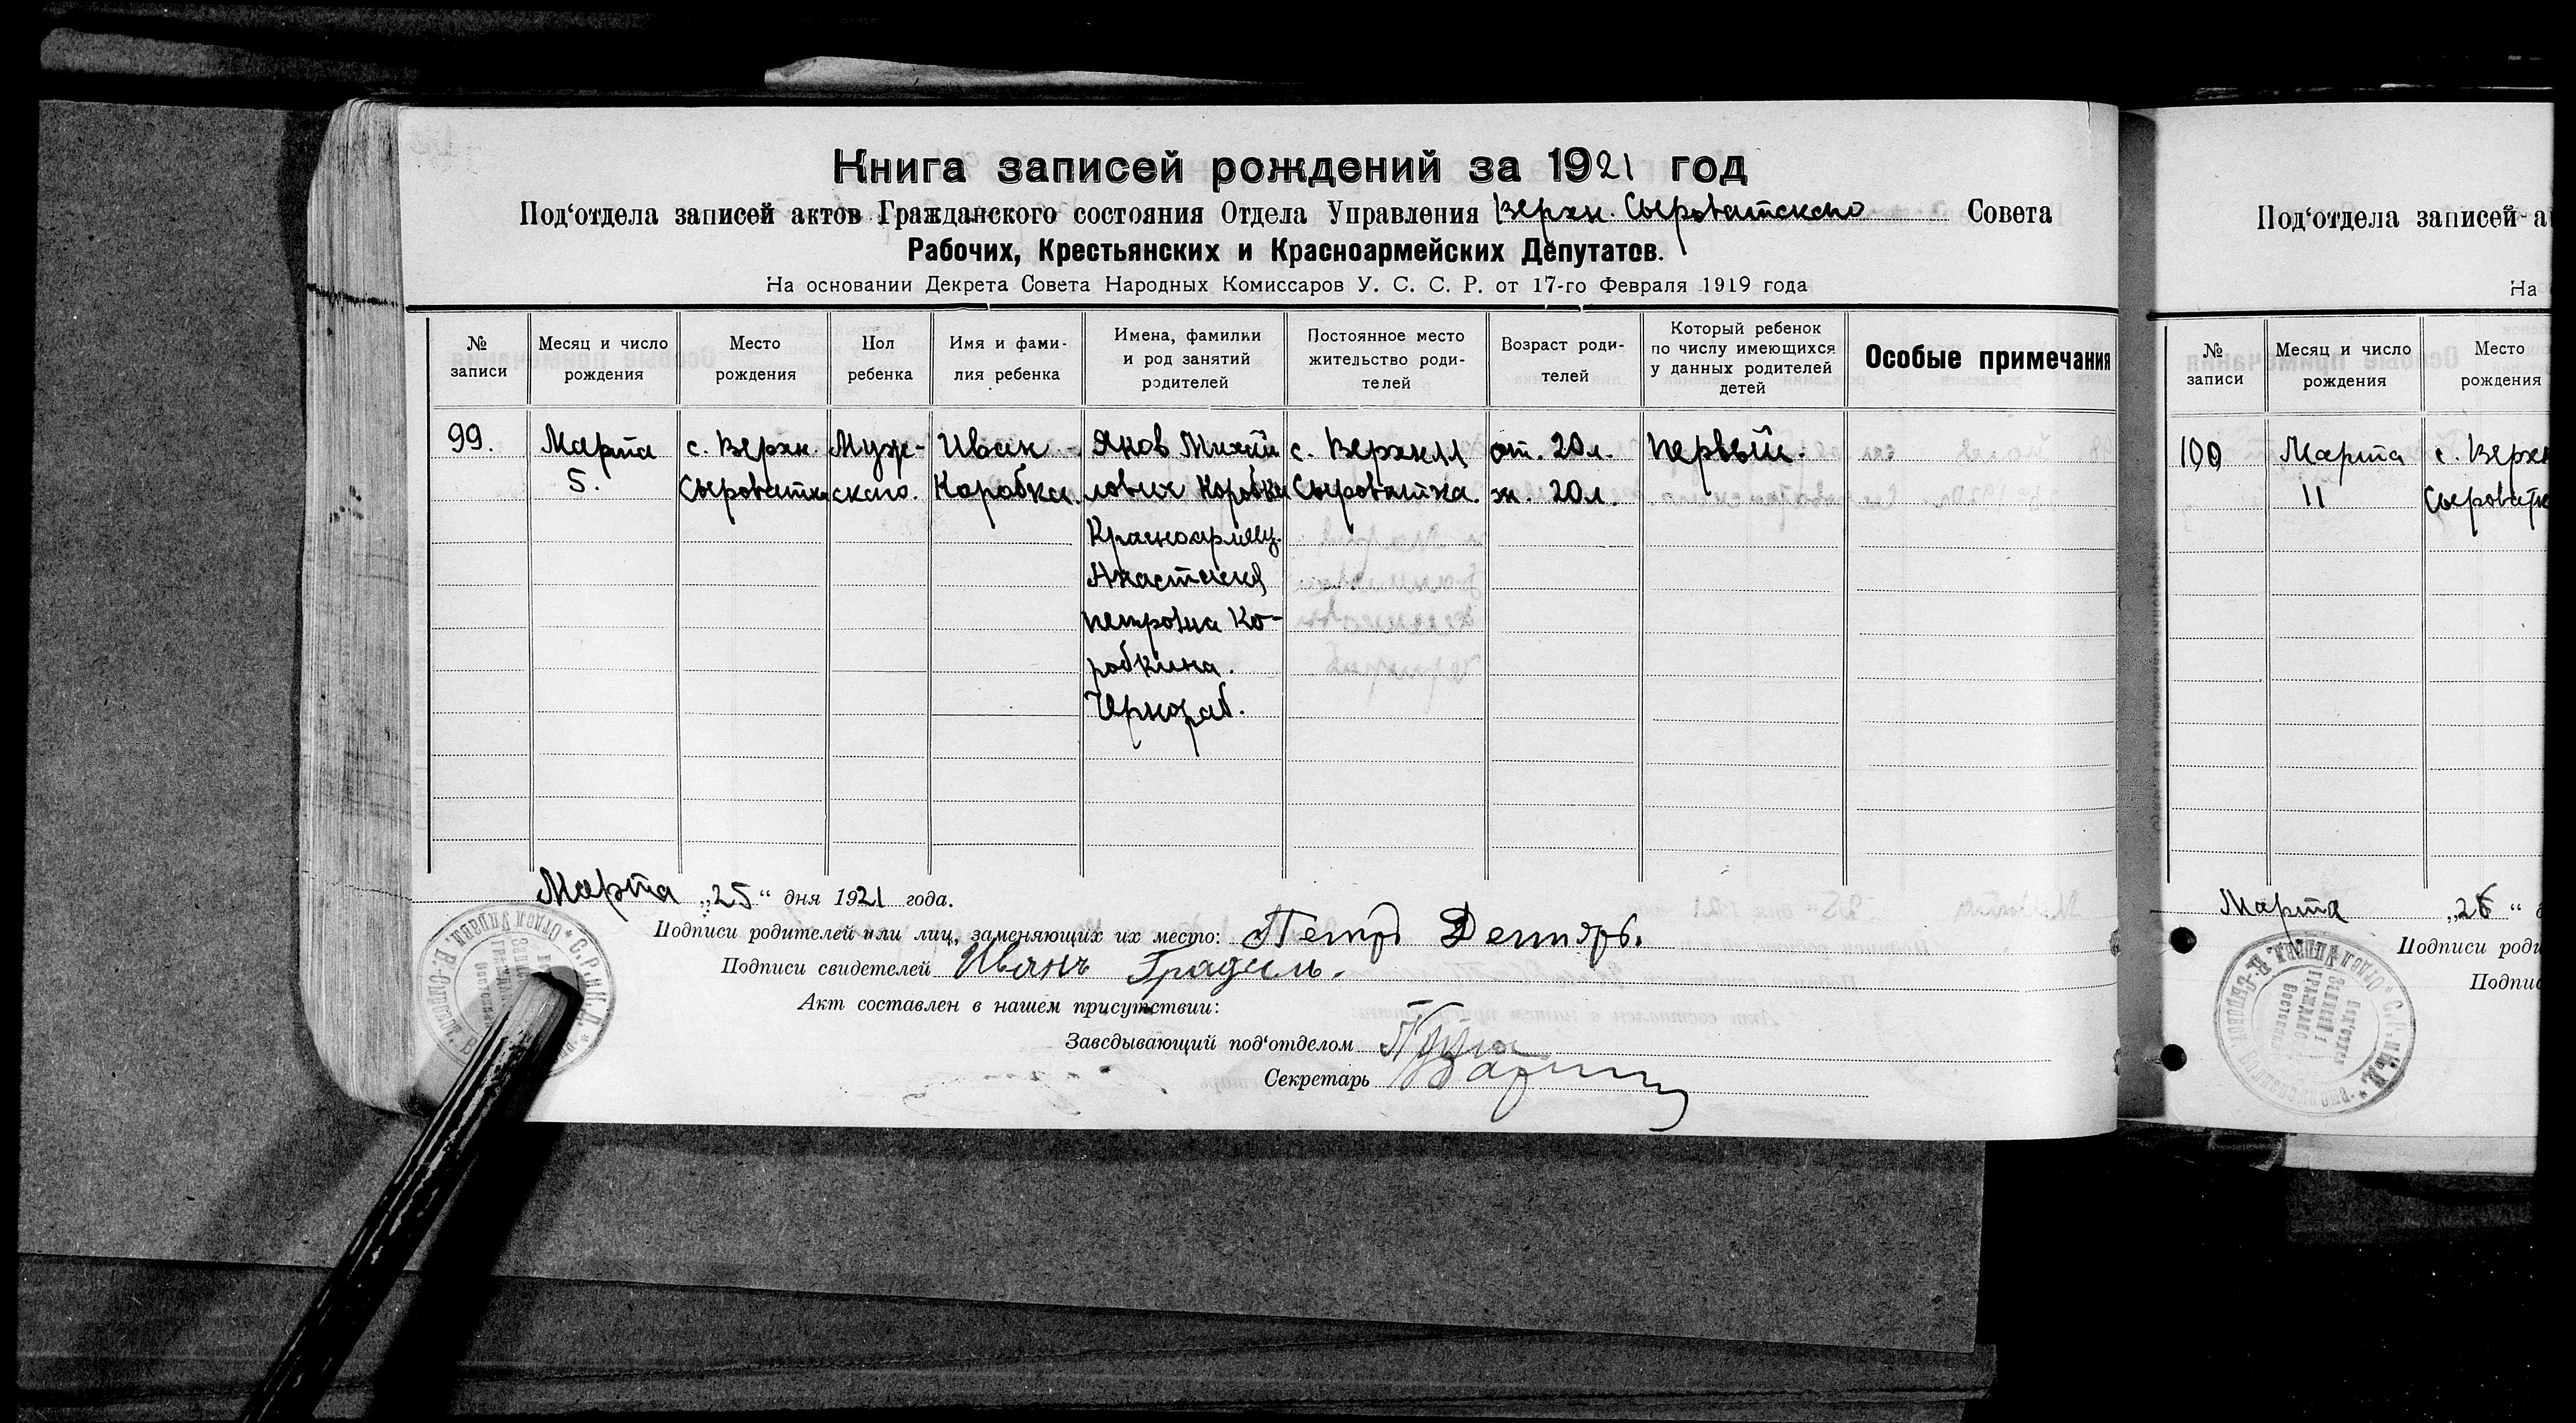 Книга записей рождений за 1921 год
Под‘отдела записей актов Гражданского состояния Отдела Управления Верхн. Сыроватского Совета
Рабочих, Крестьянских и Красноармейских Депутатов.
На основании Декрета Совета Народных Комиссаров У. С. С. Р. от 17-го Февраля 1919 года
№ записи
Месяц и число рождения
Место рождения
Пол ребенка
Имя и фами-
лия ребенка
Имена, фамилии
и род занятий
родителей
Постоянное место
жительство роди-
телей
Возраст роди-
телей
Который ребенок
по числу имеющихся
у данных родителей
детей
Особые примечания
99.
Марта
5.
с. Верхн.
Сыроватка
Муж-
скаго.
Иван
Коробка.
Яков Михай
лович Коробка
Красноармеец.
Анастасия
Петровна Ко-
робкина.
Чернораб.
с. Верхняя
Сыроватка.
от. 20 л.
м. 20 л.
Первый.
Марта „25“ дня 1921 года.
Подписи родителей или лиц, заменяющих их место: Петр
Подписи свидетелей Иванъ
Акт составлен в нашем присутствии:
Заведывающий под‘отделом
Секретарь
Под‘отдела записей а
На
№ записи
Месяц и число
рождения
Место
рождения
100
Марта
11
с. Верхн
Сыроватк
Марта „26“
Подписи роди
Подпис